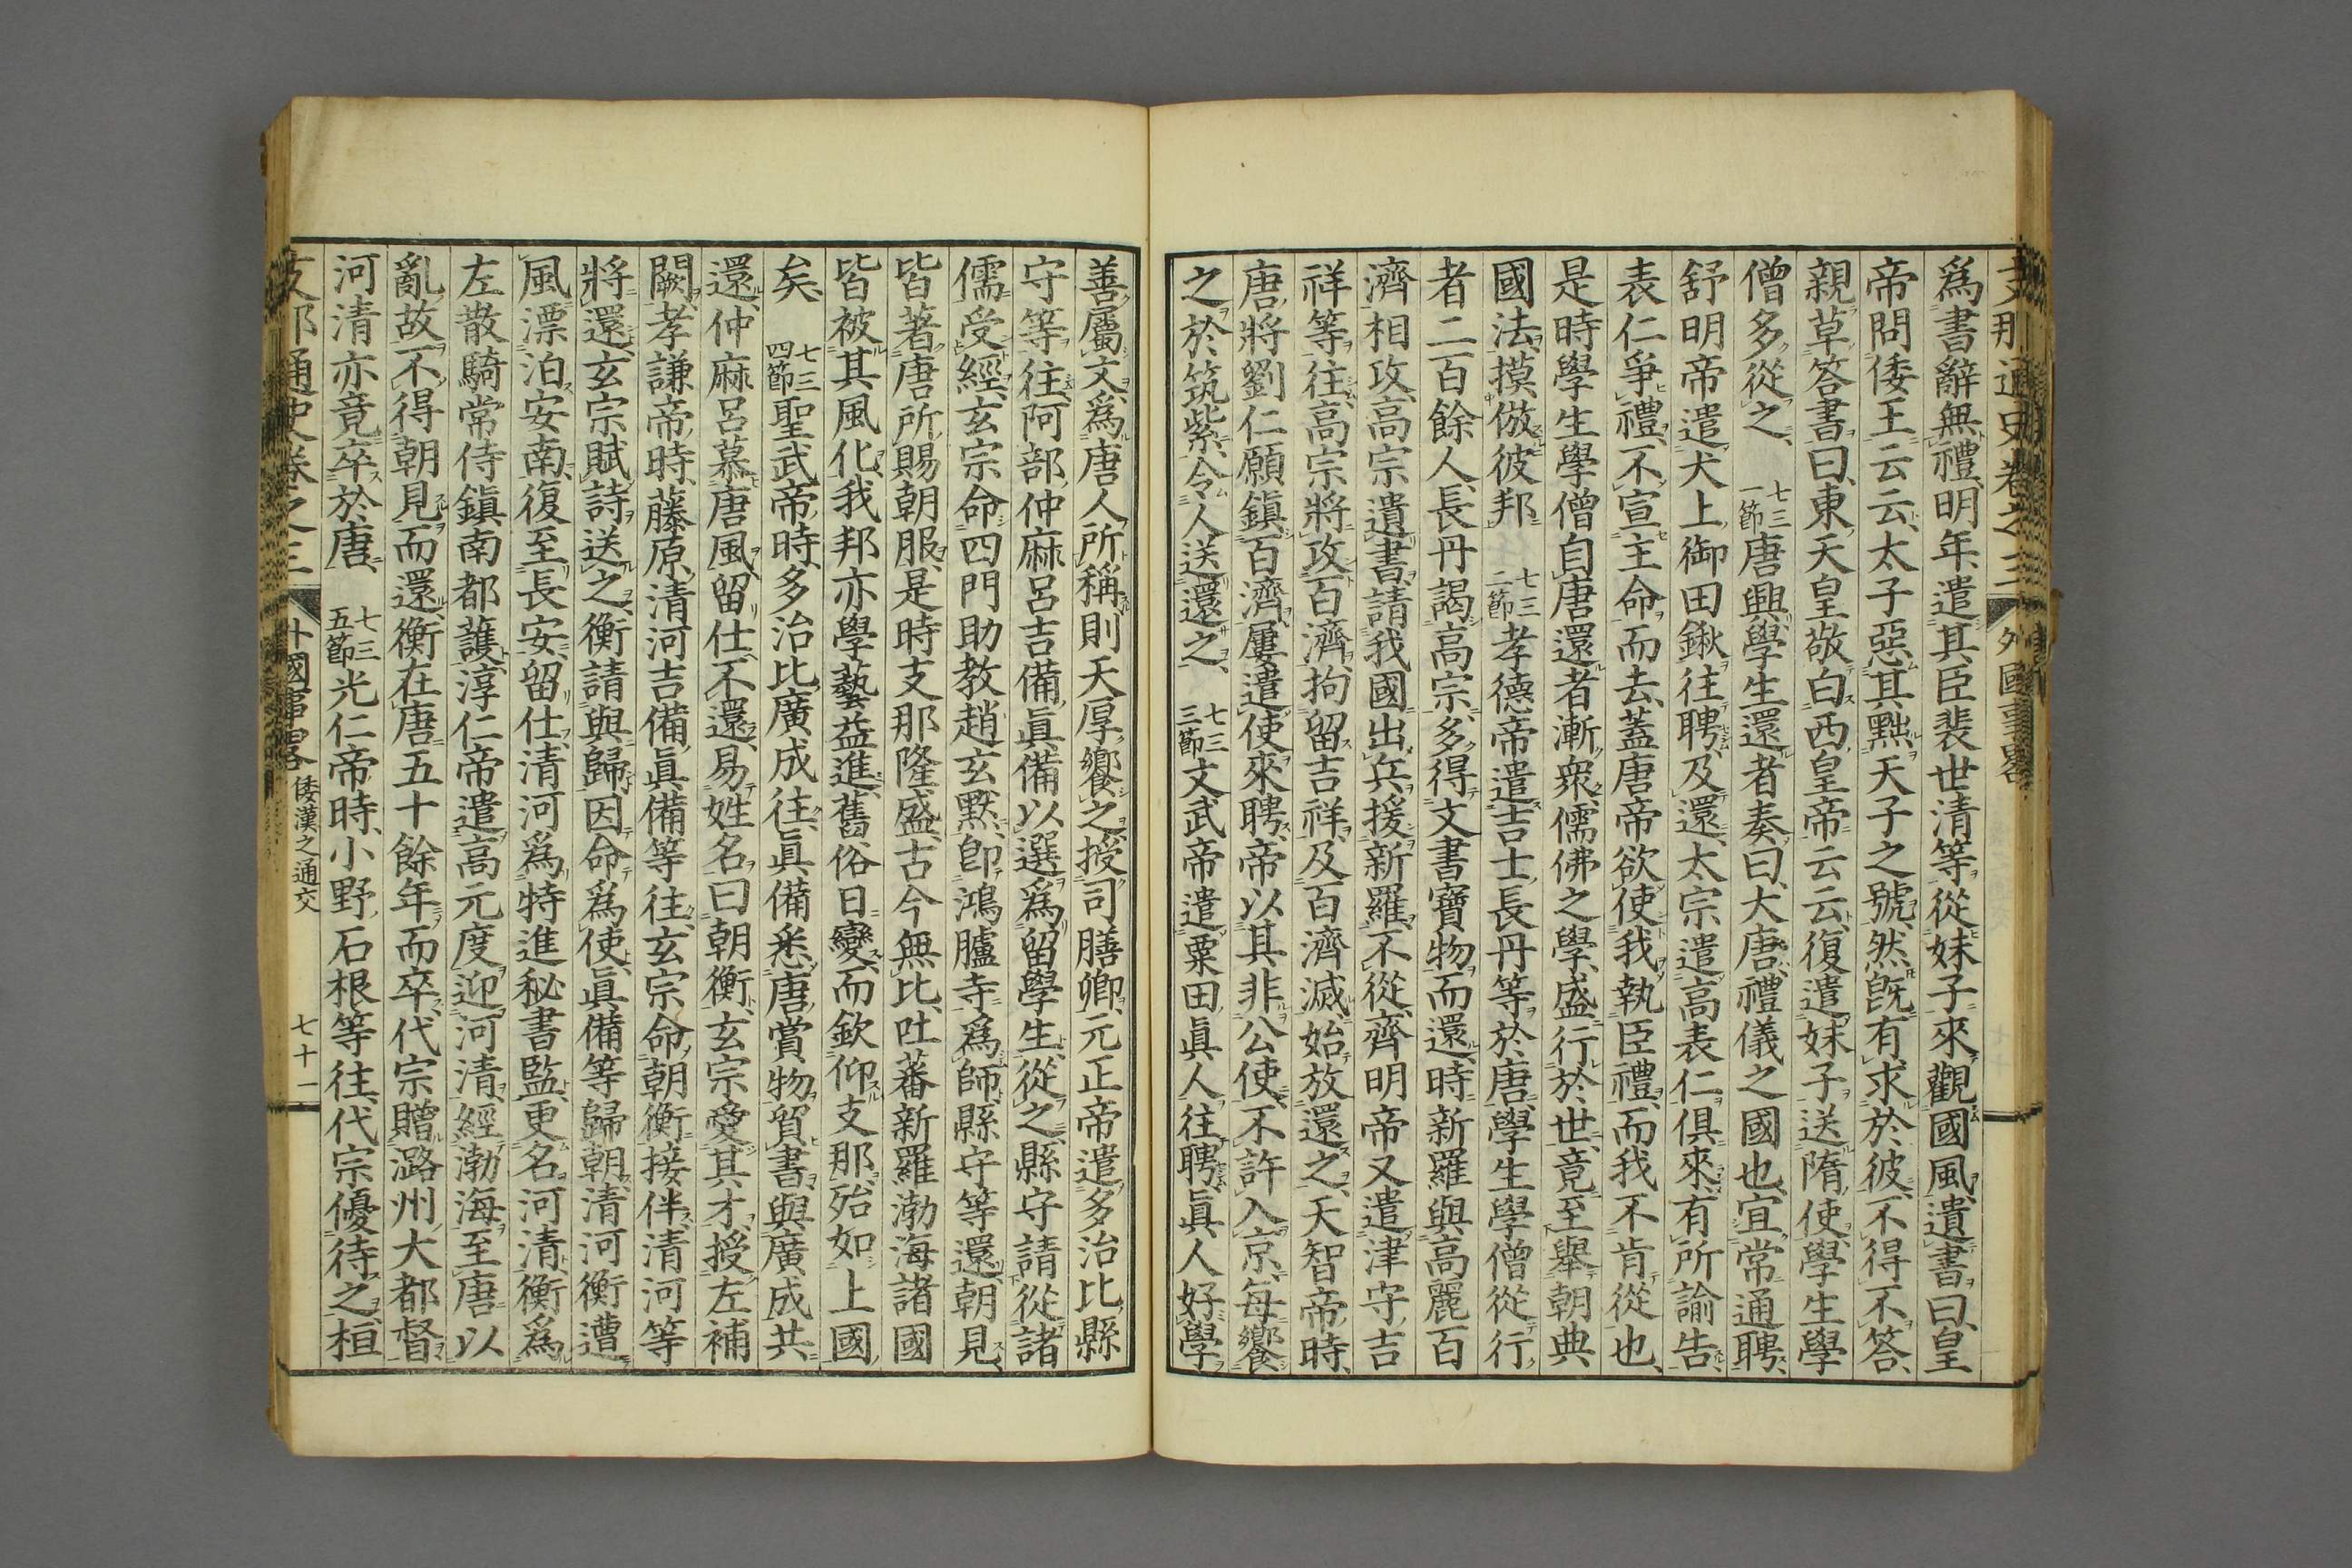 支那通史卷之三 外國事略
爲書辭無禮、明年、遣其臣裴世清等、從妹子來觀國風、遺書曰、皇
帝問倭王云云、太子惡其黜天子之號、然既有求於彼、不得不答、
親草答書曰、東天皇敬白西皇帝云云、復遣妹子送隋使、學生學
僧多從之、七三一節唐興、學生還者奏曰、大唐禮儀之國也、宜常通聘、
舒明帝遣犬上御田鍬往聘、及還、太宗遣高表仁俱來、有所諭告、
表仁爭禮、不宣主命而去、蓋唐帝欲使我執臣禮、而我不肯從也、
是時學生學僧自唐還者漸衆、儒佛之學、盛行於世、竟至擧朝典
國法、摸倣彼邦、七三二節孝德帝遣吉士長丹等於唐、學生學僧從行
者二百餘人、長丹謁高宗、多得文書寶物而還、時新羅與高麗百
濟相攻、高宗遺書、請我國出兵援新羅、不從、齊明帝又遣津守吉
祥等往、高宗將攻百濟、拘留吉祥、及百濟滅、始放還之、天智帝時、
唐將劉仁願鎭百濟、屢遣使來聘、帝以其非公使、不許入京、每饗
之於筑紫、令人送還之、七三三節文武帝遣粟田眞人往聘、眞人好學
善屬文、爲唐人所稱、則天厚饗之、授司膳卿、元正帝遣多治比縣
守等往、阿部仲麻呂吉備眞備以選爲留學生、從之、縣守請從諸
儒受經、玄宗命四門助敎趙玄默、卽鴻臚寺爲師、縣守等還、朝見
皆著唐所賜朝服、是時支那隆盛、古今無比、吐蕃新羅渤海諸國
皆被其風化、我邦亦學藝益進、舊俗日變、而欽仰支那、殆如上國
矣、七三四節聖武帝時、多治比廣成往、眞備悉唐賞物貿書、與廣成共
還、仲麻呂慕唐風、留仕不還、易姓名曰朝衡、玄宗愛其才、授左補
闕、孝謙帝時、藤原淸河吉備眞備等往、玄宗命朝衡接伴、淸河等
將還、玄宗賦詩送之、衡請與歸、因命爲使、眞備等歸朝、淸河衡遭
風漂泊安南、復至長安、留仕、淸河爲特進秘書監、更名河淸、衡爲
左散騎常侍鎭南都護、淳仁帝遣高元度迎河淸、經渤海至唐、以
亂故、不得朝見而還、衡在唐五十餘年而卒、代宗贈潞州大都督、
河淸亦竟卒於唐、七三五節光仁帝時、小野石根等往、代宗優待之、桓
支那通史卷之三 外國事略 倭漢之通交 七十二